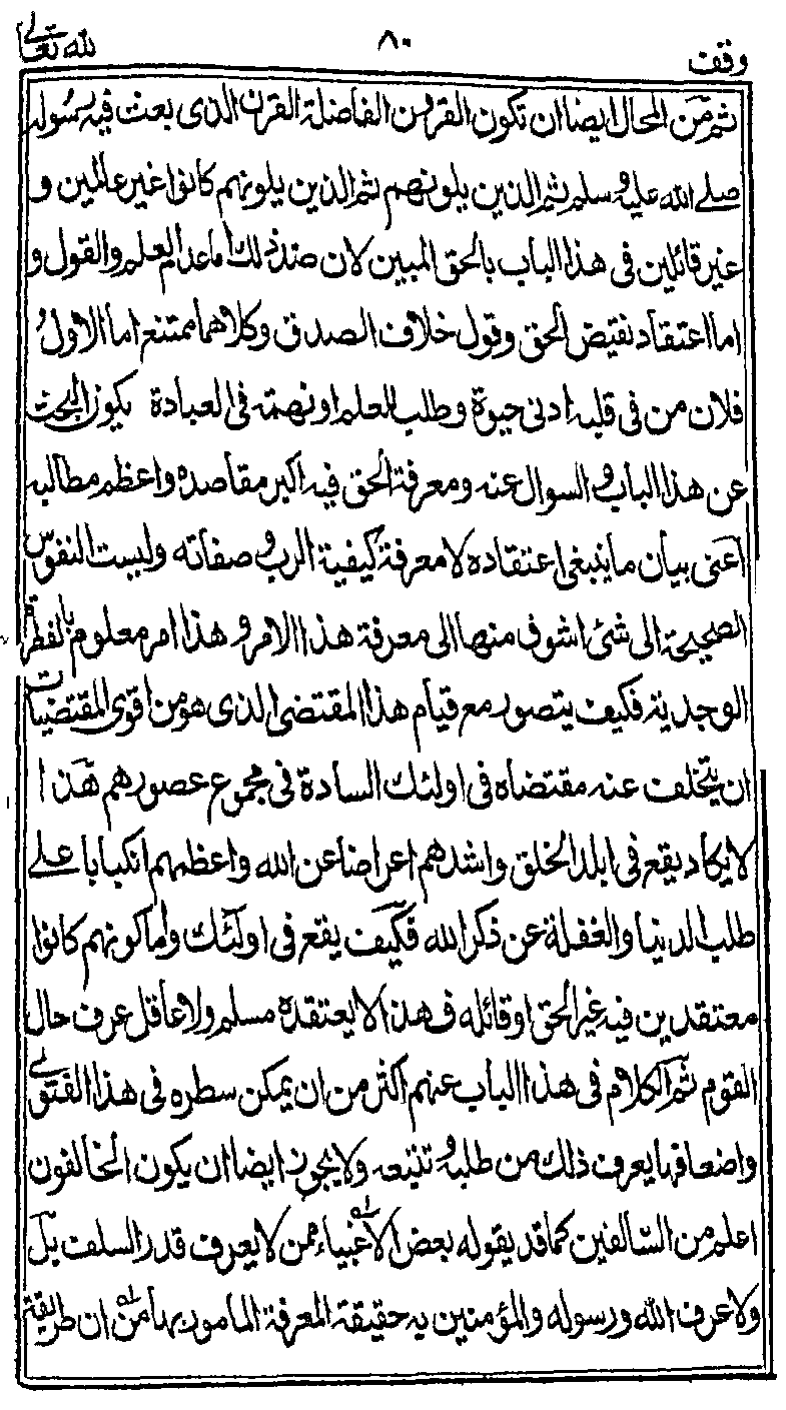 وقف ٨٠ لله تعالى
ثم من المحال ايضا ان تكون القرون الفاضلة القرن الذى بعث فيه رسوله
صلى الله عليه و سلم ثم الذين يلونهم ثم الذين يلونهم كانوا غير عالمين و
غير قائلين فى هذا الباب بالحق المبين لان ضد ذلك اما عدم العلم والقول و
اما اعتقاد نقيض الحق وقول خلاف الصدق وكلاهما ممتنع اما الاول
فلان من فى قلبه ادنى حيوة وطلب للعلم او نهمته فى العبادة يكون البحث
عن هذا الباب و السوال عنه ومعرفة الحق فيه اكبر مقاصده واعظم مطالبه
اعنى بيان ما ينبغى اعتقاده لا معرفة كيفية الرب و صفاته وليست النفوس
الصحيحة الى شئ اشوق منها الى معرفة هذا الامر و هذا امر معلوم بالفطرة
الوجدية فكيف يتصور مع قيام هذا المقتضى الذى هو من اقوى المقتضيات
ان يتخلف عنه مقتضاه فى اولئك السادة فى مجموع عصورهم هذا
لا يكاد يقع فى ابلد الخلق واشدهم اعراضا عن الله واعظمهم انكبابا على
طلب الدنيا والغفلة عن ذكر الله فكيف يقع فى اولئك واما كونهم كانوا
معتقدين فيه غير الحق او قائله فهذا لا يعتقده مسلم ولا عاقل عرف حال
القوم ثم الكلام فى هذا الباب عنهم اكثر من ان يمكن سطره فى هذا الفتوى
واضعافها يعرف ذلك من طلبه و تتبعه ولا يجوز ايضا ان يكون الخالفون
اعلم من السالفين كما قد يقوله بعض الاغبياء ممن لا يعرف قدر السلف بل
ولا عرف الله ورسوله والمؤمنين به حقيقة المعرفة المامور بها من ان طريقة